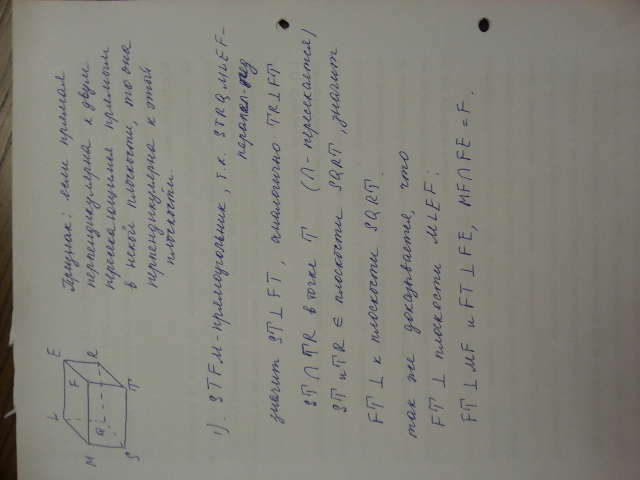 Признак: если прямая
перпендикулярна к двум
пересекающимся прямым
в некой плоскости, то она
перпендикулярна к этой
плоскости.
L E
M F
Q R
S T
1). STFM - прямоугольник, т.к. STRQMLEF -
параллел-пед
значит ST ⊥ FT, аналогично TR ⊥ FT
ST ∩ TR в точке T (∩ - пересекается)
ST и TR ∈ плоскости SQRT, значит
FT ⊥ к плоскости SQRT.
так же доказывается, что
FT ⊥ плоскости MLEF:
FT ⊥ MF и FT ⊥ FE, MF ∩ FE = F.